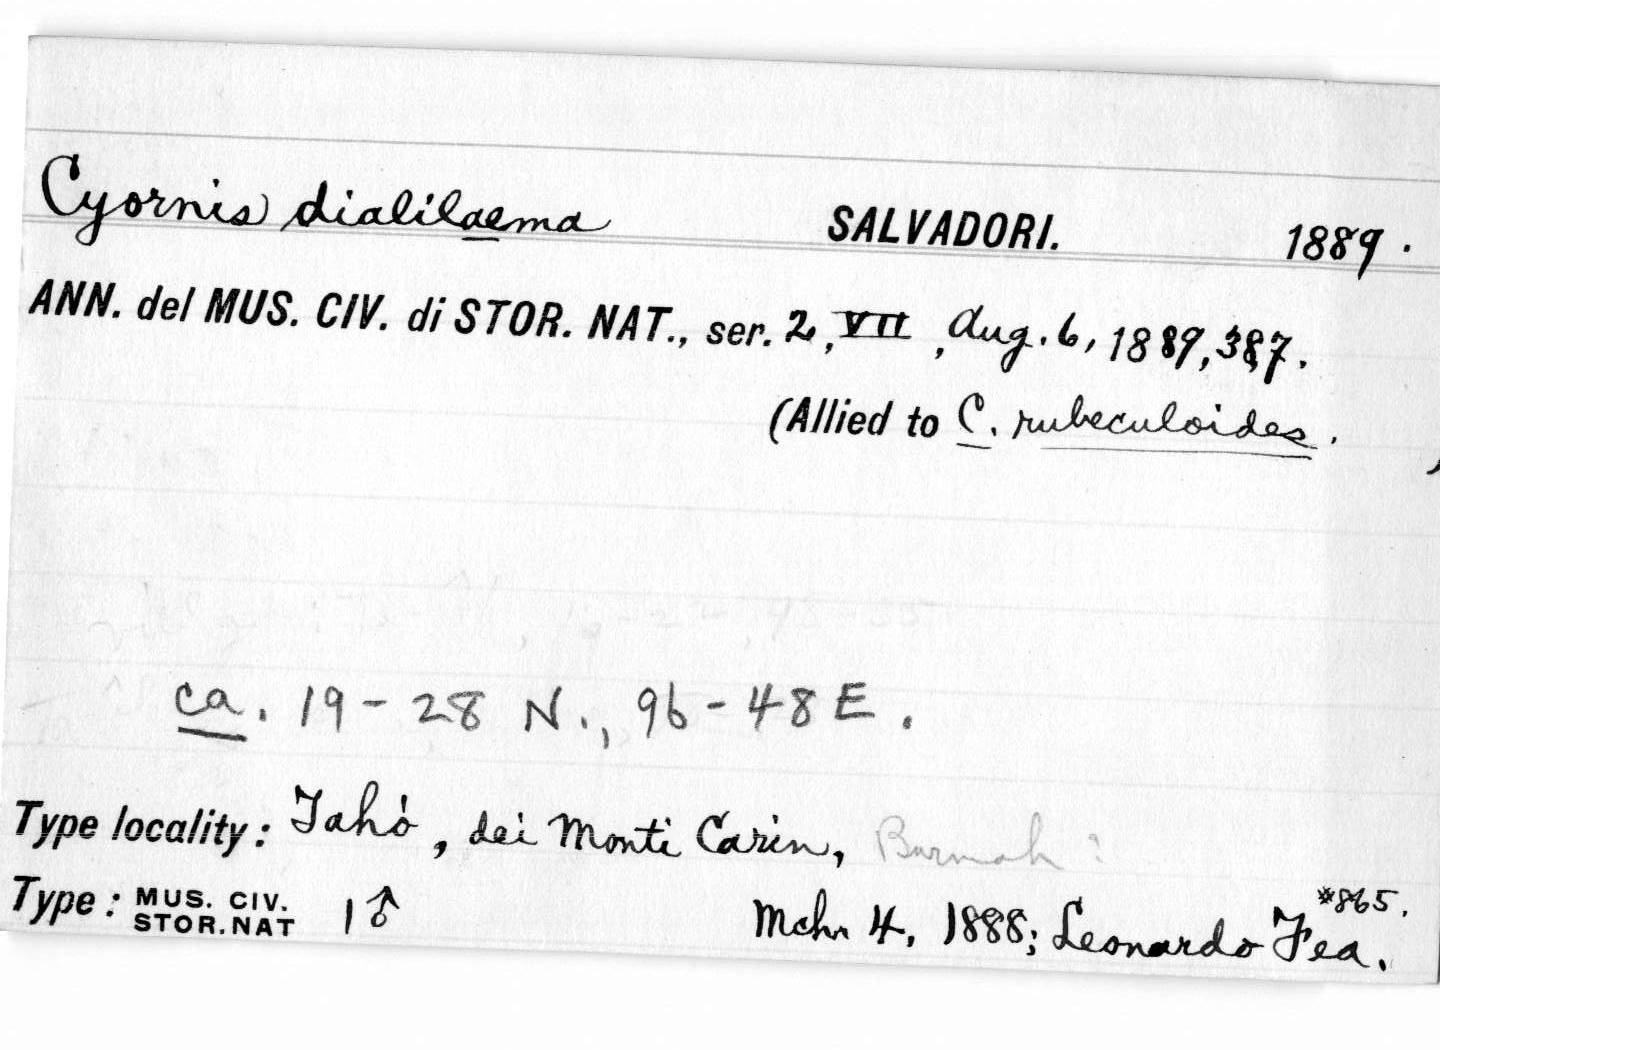 Cyornis dialilaema SALVADORI. 1889.
ANN. del MUS. CIV. di STOR. NAT., ser. 2, VII, Aug. 6, 1889, 387.
(Allied to C. rubeculoides. )
ca. 19-28 N., 96-48 E.
Type locality: Tahò, dei Monti Carin, Burmah:
Type: MUS. CIV. STOR. NAT 1♂ Mch 4, 1888; Leonardo Fea. #865.